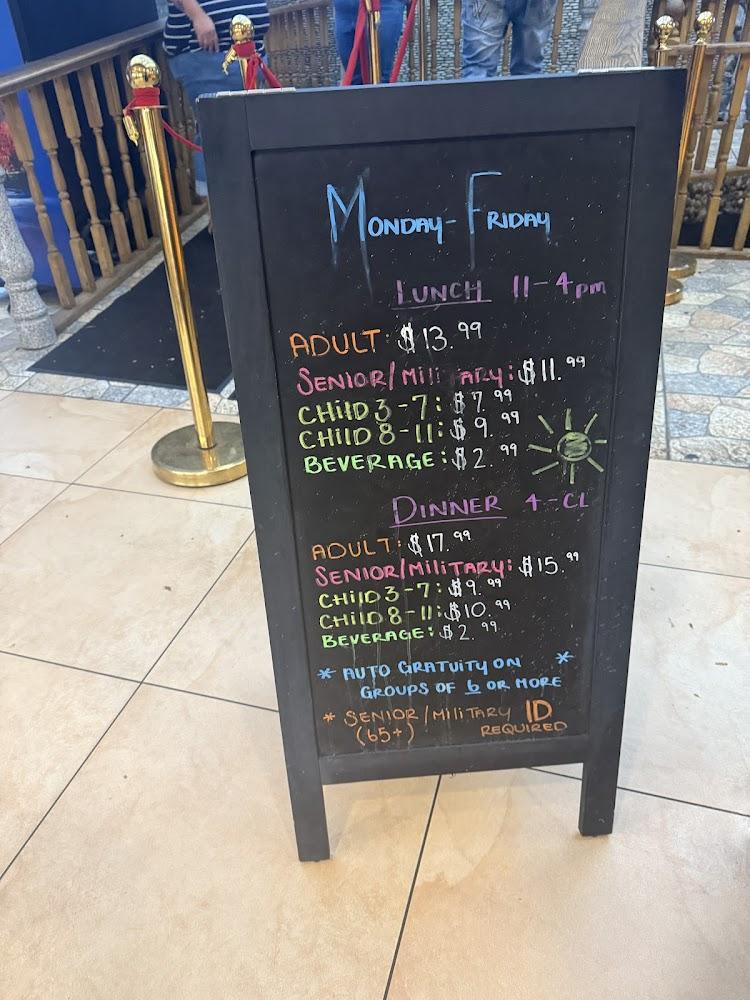 MONDAY - FRIDAY
LUNCH 11 - 4 pm
ADULT: $13.99
SENIOR/MiliTARY: $11.99
CHilD 3 - 7: $7.99
CHilD 8 - 11: $9.99
BEVERAGE: $2.99
DINNER 4 - CL
ADULT: $17.99
SENIOR/MiliTARY: $15.99
CHilD 3 - 7: $9.99
CHilD 8 - 11: $10.99
BEVERAGE: $2.99
* AUTO GRATUITY ON *
GROUPS OF 6 OR MORE
* SENIOR / MiliTARY ID
(65+) REQUIRED